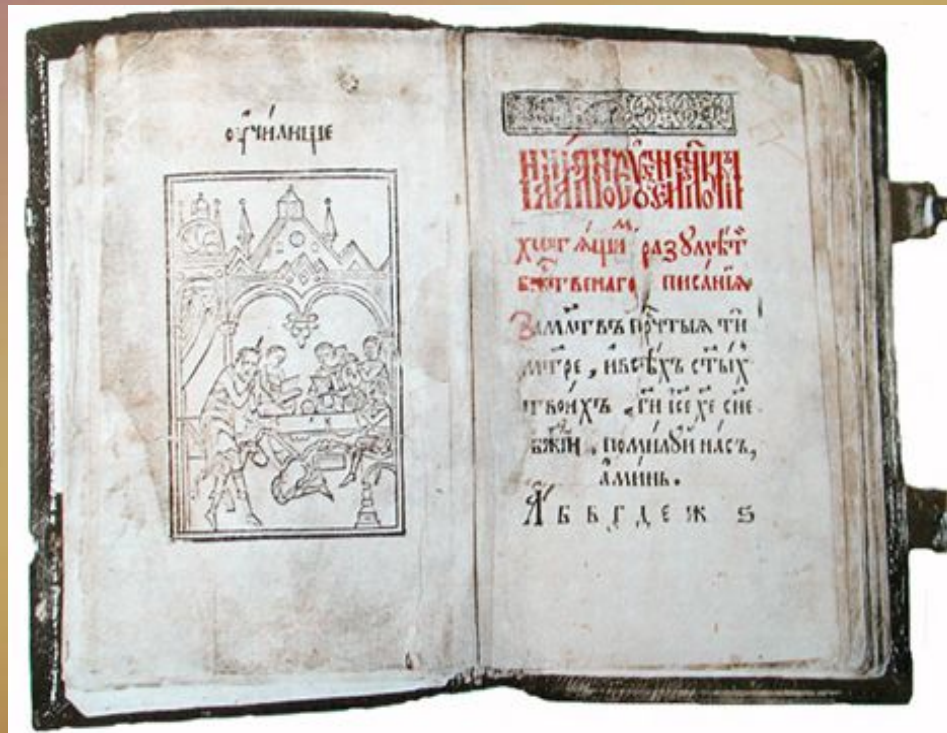 оу҆чи́лище
хотѧ́щиⷨ разꙋмѣ́тⷤи
бжⷭ҇твенаго писа́нїѧ
За мл҃твъ прⷱ҇тыѧ тѝ
мт҃ре, и҆ всѣ́хъ ст҃ы́х
твои́хъ, гⷭ҇и і҆с҃е хе҃ сн҃е
бж҃їи, поми́лꙋй на́съ,
а҆ми́нь.
А҆ б в г д е ж ѕ